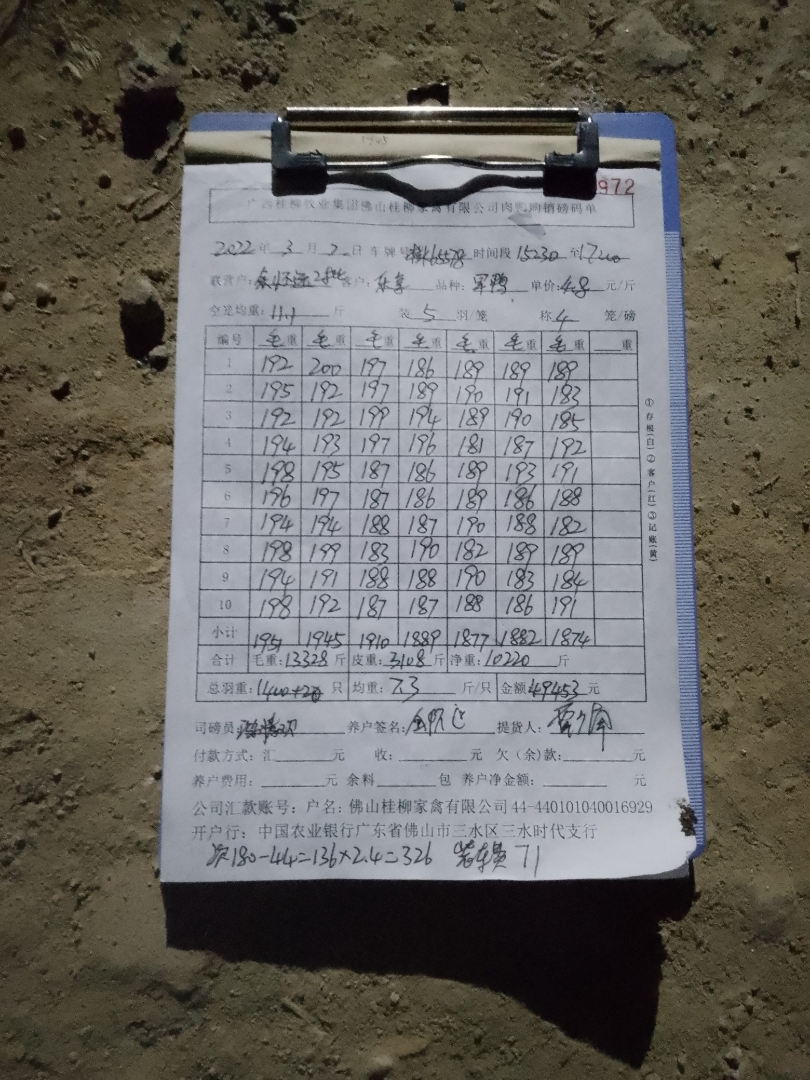 1945
972
广西桂柳牧业集团佛山桂柳家禽有限公司肉鸭购销磅码单
2022年3月2日 车牌号 时间段15230至17200
联营户: 客户: 乐享 品种: 军鸭 单价:4.8元/斤
空笼均重:11.1斤 装5羽/笼 称4笼/磅
编号 毛重 毛重 毛重 毛重 毛重 毛重 毛重 重
1 192 200 197 186 189 189 189
2 195 192 197 189 190 191 183
3 192 192 199 194 189 190 185
4 194 193 197 196 181 187 192
5 198 195 187 186 189 193 191
6 196 197 187 186 189 186 188
7 194 194 188 187 190 188 182
8 198 199 183 190 182 189 189
9 194 191 188 188 190 183 184
10 198 192 187 187 188 186 191
小计 1951 1945 1910 1889 1877 1882 1874
合计 毛重:13328斤 皮重:3108斤 净重:10220斤
总羽重:1400+2只 均重:7.3斤/只 金额:49453元
司磅员: 养户签名: 提货人:
付款方式:汇 元 收: 元 欠(余)款: 元
养户费用: 元 余料 包 养户净金额: 元
公司汇款账号:户名:佛山桂柳家禽有限公司44-440101040016929
开户行:中国农业银行广东省佛山市三水区三水时代支行
次180-44=136×2.4=326 装车费71
①存根(白)②客户(红)③记账(黄)